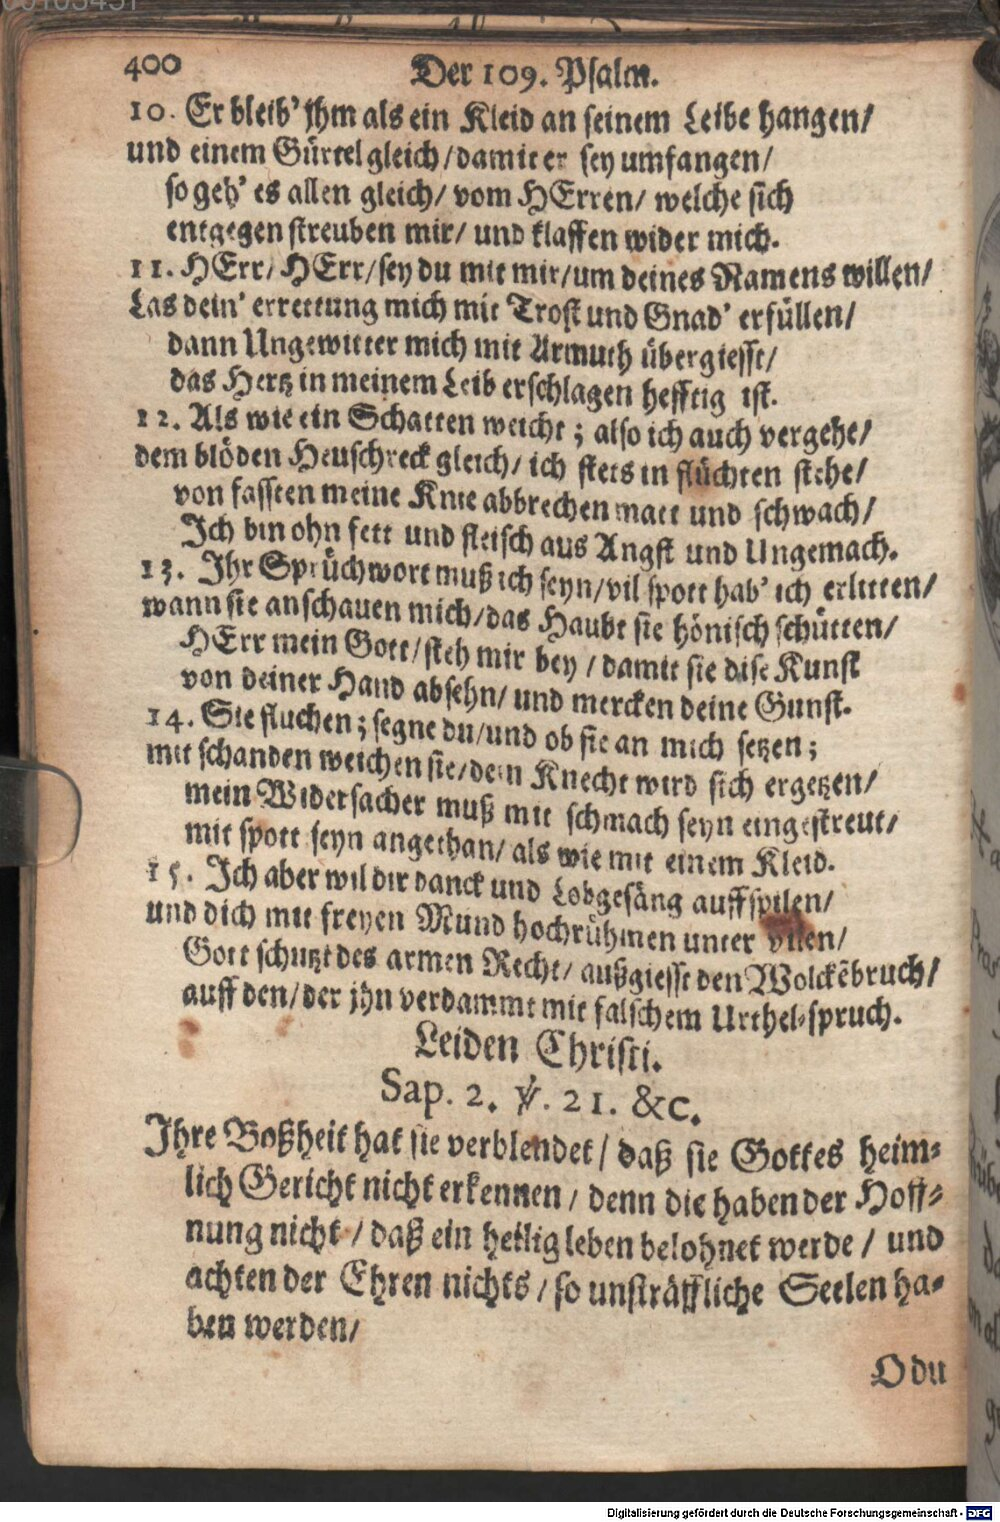 400 Der 109. Psalm.
10. Er bleib' jhm als ein Kleid an seinem Leibe hangen/
und einem Gürtel gleich/damit er sey umfangen/
so geh' es allen gleich/ vom HErren/ welche sich
entgegen streuben mir/ und klaffen wider mich.
11. HErr/ HErr/sey du mit mir/um deines Namens willen/
Las dein' errettung mich mit Trost und Gnad' erfüllen/
dann Ungewitter mich mit Armuth übergiesst/
das Hertz in meinem Leib erschlagen hefftig ist.
12. Als wie ein Schatten weicht; also ich auch vergehe/
dem blöden Heuschreck gleich/ ich stets in flüchten stehe/
von fassten meine Knie abbrechen matt und schwach/
Ich bin ohn fett und fleisch aus Angst und Ungemach.
13. Ihr Sprüchwort muß ich seyn/vil spott hab' ich erlitten/
wann sie anschauen mich/das Haubt sie hönisch schütten/
HErr mein Gott/steh mir bey/damit sie dise Kunst
von deiner Hand absehn/ und mercken deine Gunst.
14. Sie fluchen; segne du/und ob sie an mich setzen;
mit schanden weichen sie/dein Knecht wird sich ergetzen/
mein Widersacher muß mit schmach seyn eingestreut/
mit spott seyn angethan/ als wie mit einem Kleid.
15. Ich aber wil dir danck und Lobgesäng auffspilen/
und dich mit freyen Mund hochrühmen unter vilen/
Gott schutzt des armen Recht/ außgiesst den Wolckēbruch/
auff den/der jhn verdammt mit falschem Urthel-spruch.
Leiden Christi.
Sap. 2. ℣. 21. &c.
Ihre Boßheit hat sie verblendet/ daß sie Gottes heim-
lich Gericht nicht erkennen/ denn die haben der Hoff-
nung nicht/daß ein heilig leben belohnet werde/ und
achten der Ehren nichts/so unsträffliche Seelen ha-
ben werden/
O du
Digitalisierung gefördert durch die Deutsche Forschungsgemeinschaft - DFG